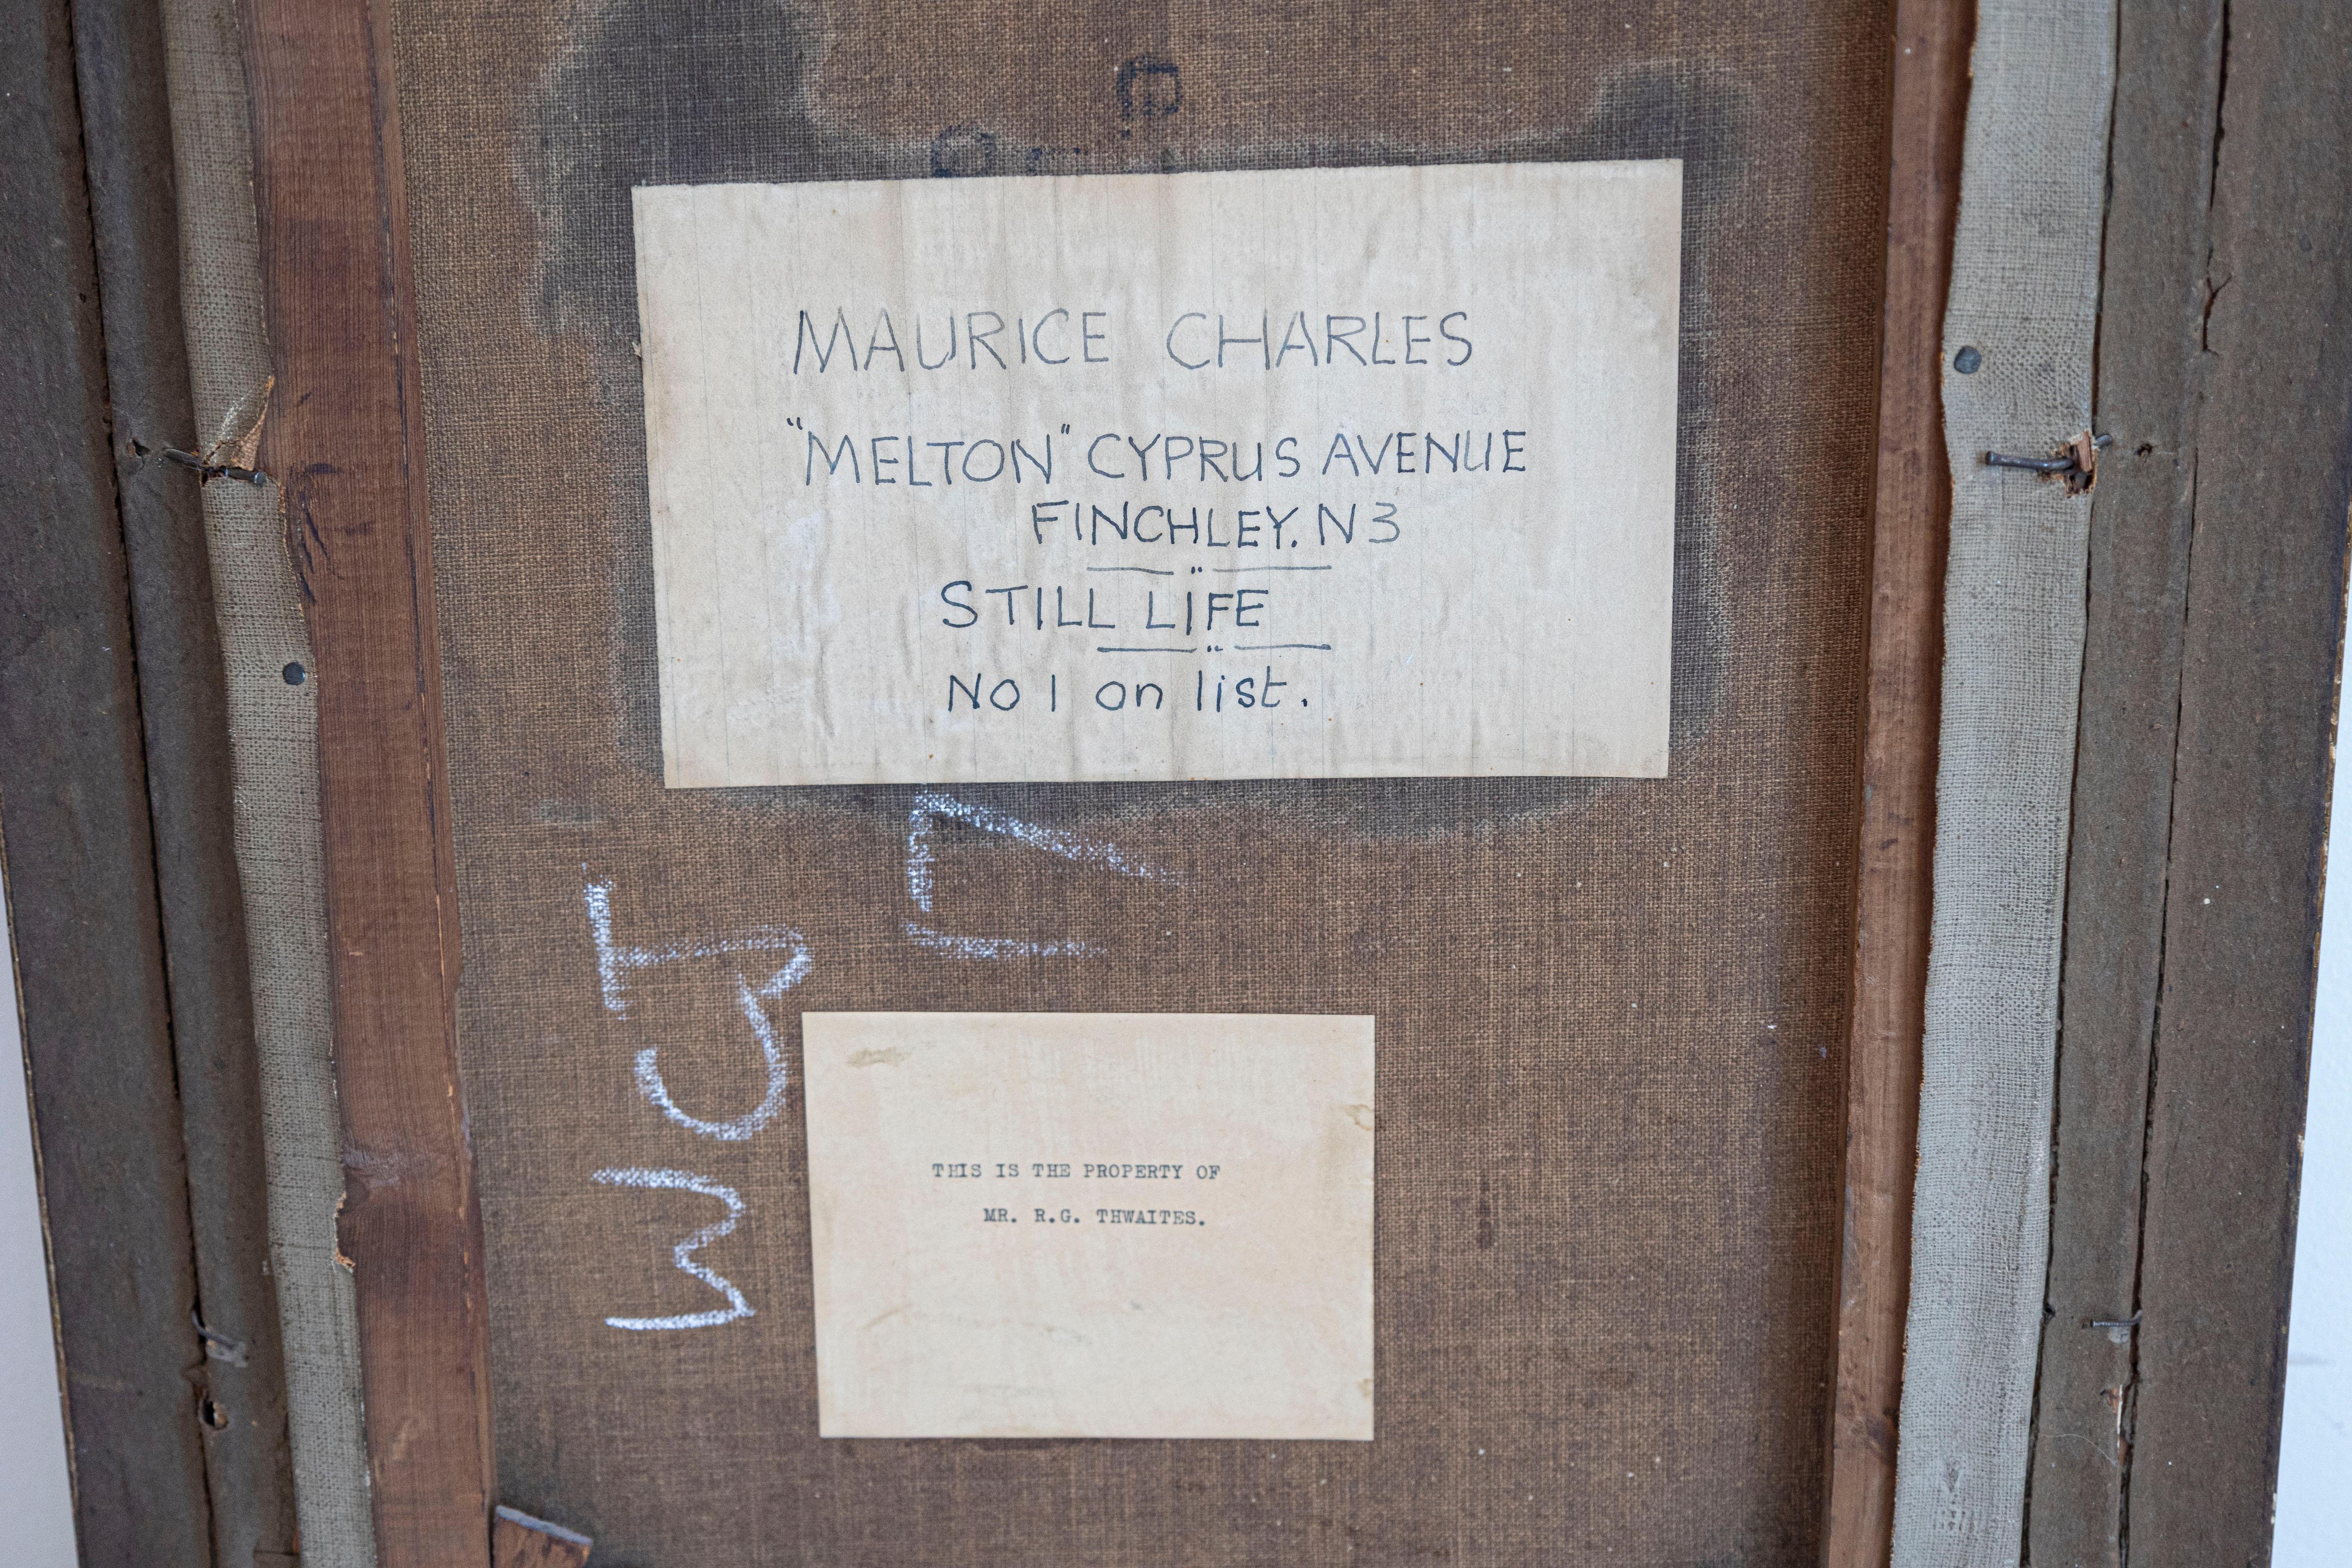 MAURICE CHARLES
"MELTON" CYPRUS AVENUE
FINCHLEY. N3
STILL LIFE
No 1 on list.
THIS IS THE PROPERTY OF
MR. R.G. THWAITES.